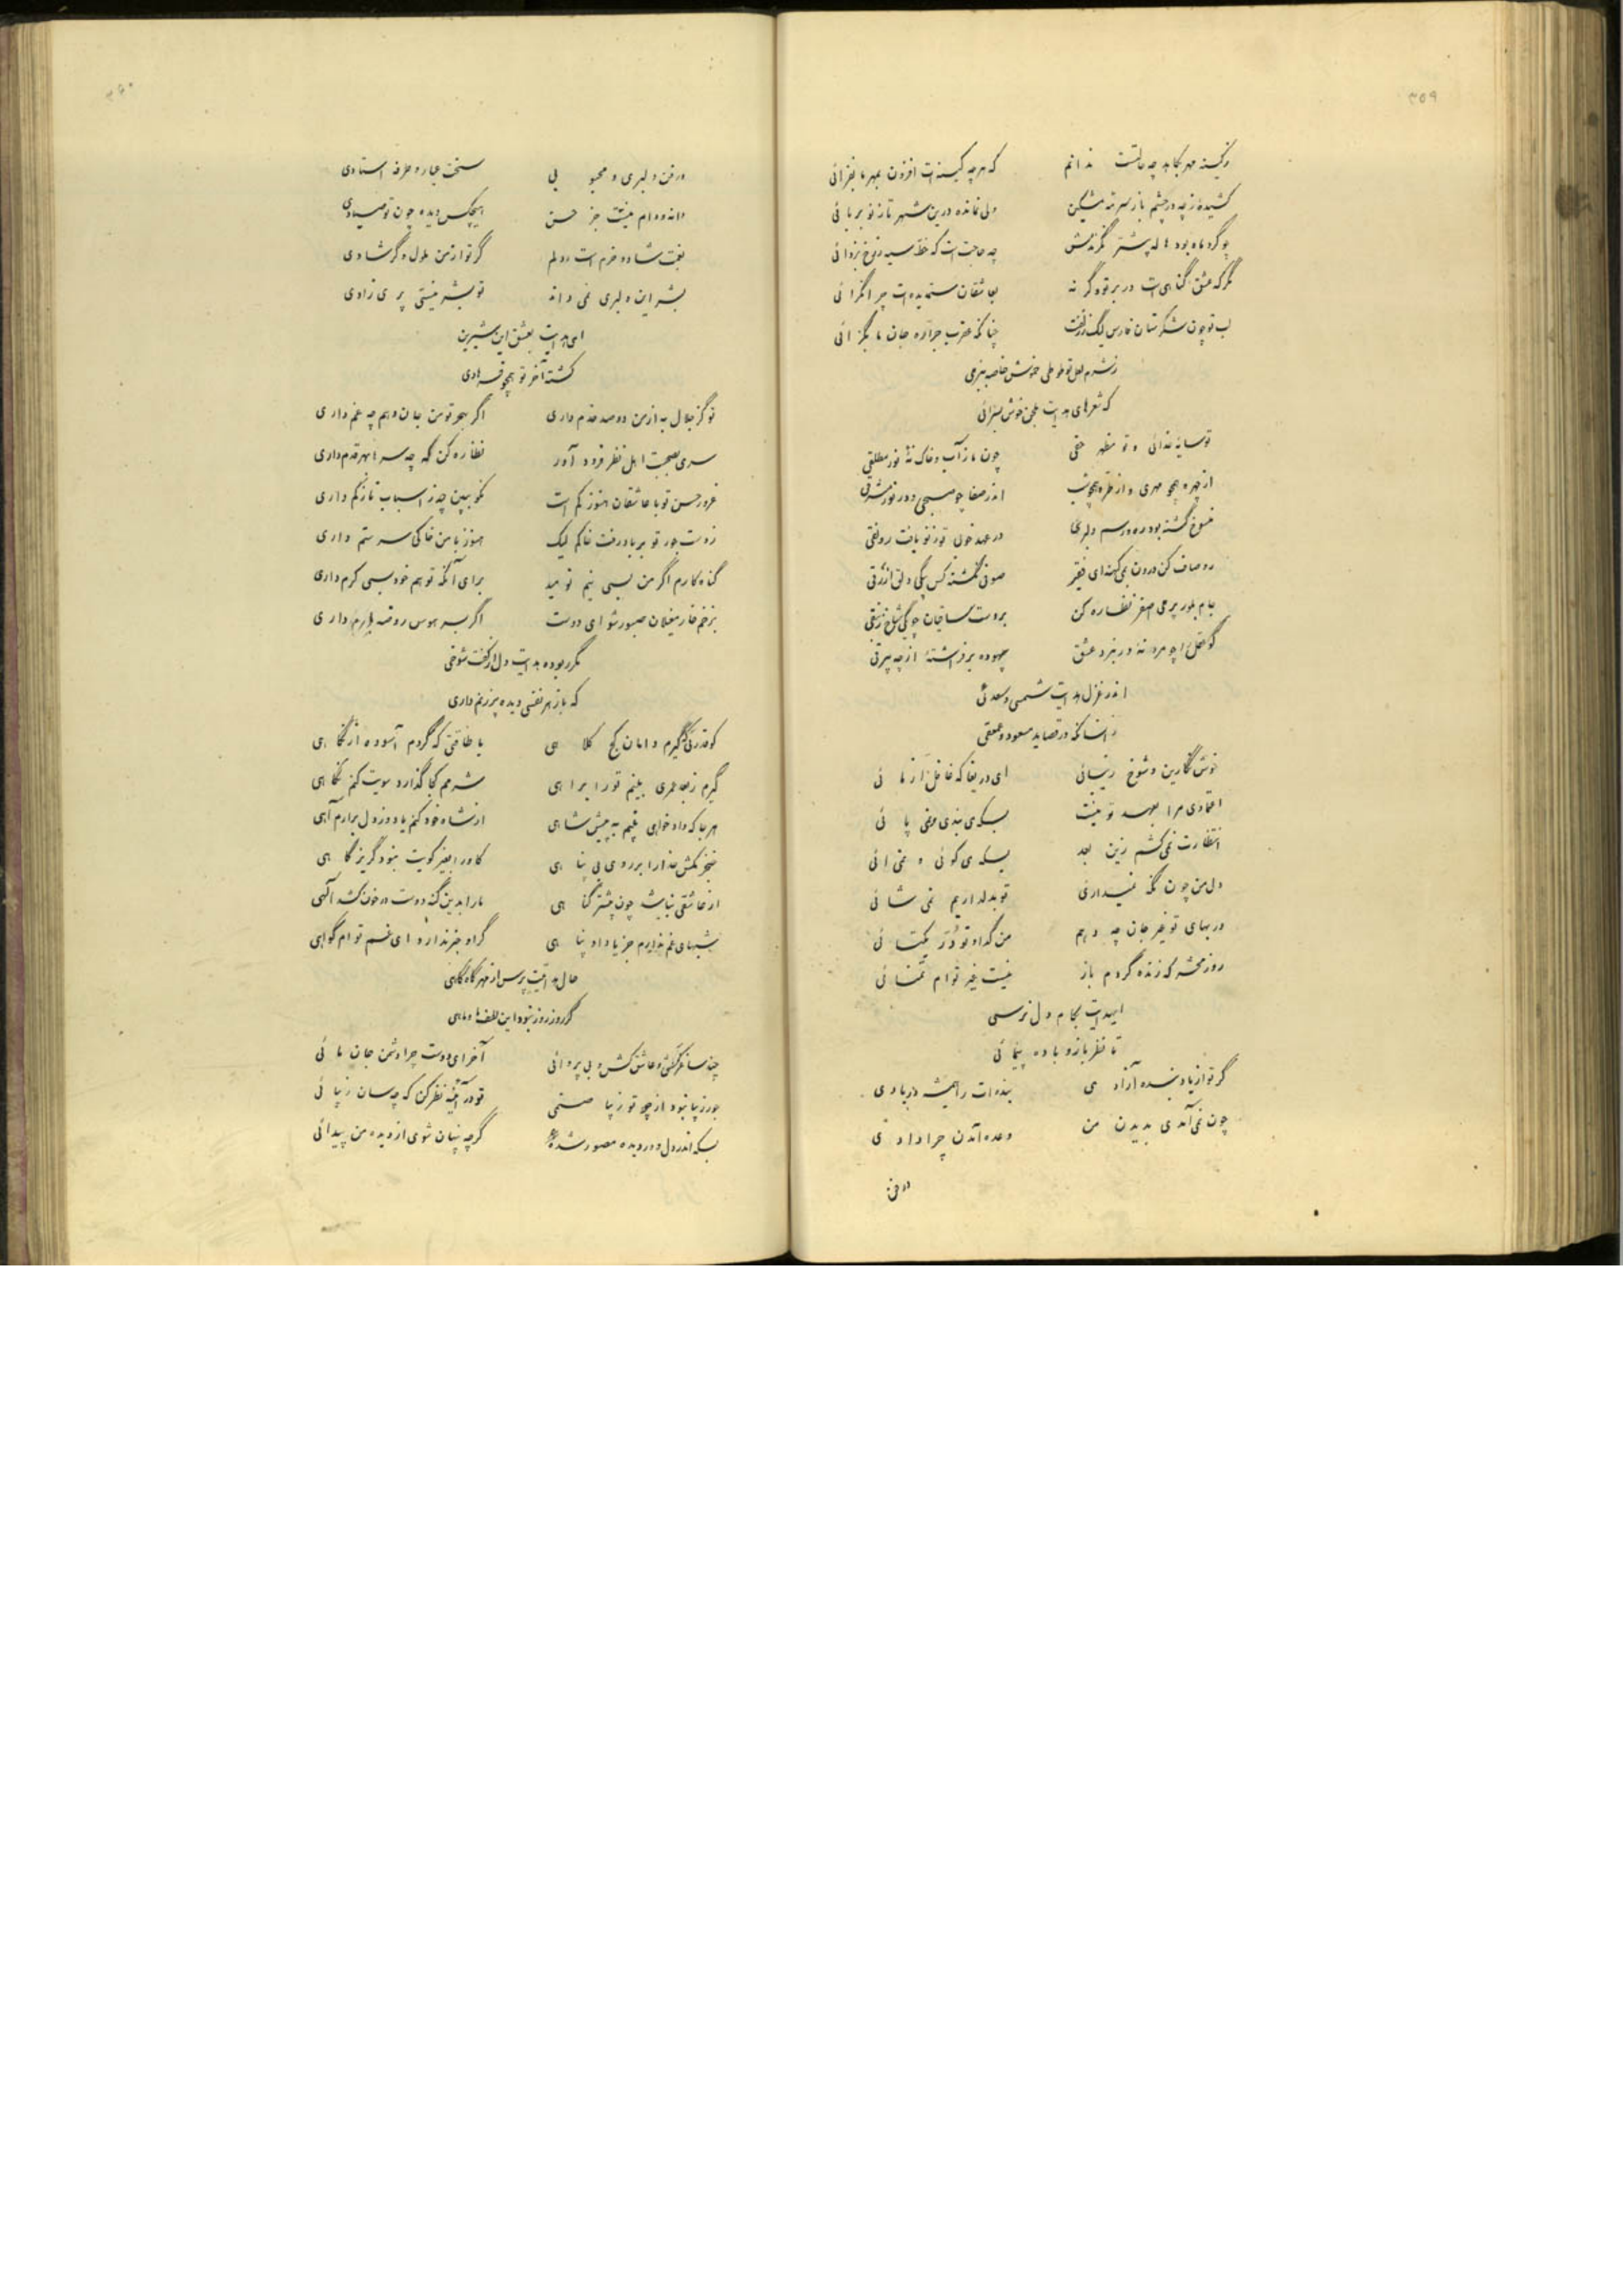 ۳۵۹
ز کینه مهر بکاهد چه حالتست ندانم که هر چه کینه‌ات افزون بمهر ما بفزائی
ولی نمانده درین شهر تا ز نو بربائی
چو گرد ماه بود هاله چه حاجت است که خط سیه ز رخ بزدائی
مگر که عشق گناهی است در بر تو گر نه بعاشقان ستمدیده‌ات چرا نگرائی
لب تو چون شکرستان فارس لیک ز زلفت چنانکه عقرب جراره جان ما بگزائی
ز شرم لعل تو طوطی خموش خاصه بنرمی
که شعرهای هدایت بلحن خوش بسرائی
تو سایهٔ خدائی و تو مظهر حقی چون ما ز آب و خاک نهٔ نور مطلقی
از چهره همچو مهری و از طره همچو شب اندر صفا چو صبحی و در نور مشرقی
منسوخ گشته بود ره و رسم دلبری در عهد خوبی تو ز نو یافت رونقی
رو صاف کن درون بمی کهنه ای فقیر صوفی نگشته کس به یکی دلق ازرقی
جام بلور پر می اصفر نظاره کن بر دست ساقیان چو یکی شاخ زنبقی
گو عقل را چو مرد نهٔ در نبرد عشق بیهوده برفراشتهٔ از چه بیرقی
اندر غزل هدایت شمسی و سعدئی
زانسانکه در قصاید مسعود و عمعقی
خوش نگارین و شوخ زیبائی ای دریغا که غافل از مائی
اعتمادی مرا بعهد تو نیست بسکه می بندی و نمی پائی
انتظارت نمی‌کشم زین بعد بسکه می گوئی و نمی آئی
دل من چون نگه نمیداری تو بدلداریم نمی شائی
در بهای تو غیر جان چه دهم من گدا و تو در یکتائی
روز محشر که زنده گردم باز نیست غیر توام تمنائی
ایهدایت بکام دل نرسی
تا نظرباز و باده پیمائی
گر تو از یاد بنده آزادی بنده‌ات را همیشه در یادی
چون نمی‌آمدی بدیدن من وعدهٔ آمدن چرا دادی
در فن
۳۶۰
در فن دلبری و محبوبی سخت عیار و طرفه استادی
دانه و دام نیست جز حسن هیچکس دیده چون تو صیادی
بغمت شاد و خرم است دلم گر تو از من ملول و گر شادی
بشر این دلبری نمی داند تو بشر نیستی پری زادی
ای هدایت بعشق این شیرین
کشته آخر تو همچو فرهادی
تو کز جلال به از من دو صد خدم داری اگر بهجر تو من جان دهم چه غم داری
سری بصحبت اهل نظر فرود آور نظاره کن که چه سرها بهر قدم داری
غرور حسن تو با عاشقان هنوز کم است نکو ببین چه ز اسباب ناز کم داری
ز دست جور تو بر باد رفت خاکم لیک هنوز با من خاکی سر ستم داری
گناه کارم اگر من بسی نیم نومید برای آنکه تو هم خود بسی کرم داری
بزخم خار مغیلان صبور شو ای دوست اگر بسر هوس روضهٔ ارم داری
مگر ربوده هدایت دل از کفت شوخی
که باز هر نفسی دیده پر ز نم داری
کو قدرتی که گیرم دامان کج کلاهی یا طاقتی که گردم آسوده از نگاهی
گیرم ز بعد عمری بینم تو را براهی شرمم کجا گذارد سویت کنم نگاهی
هر جا که دادخواهی بینم به پیش شاهی از شاه خود کنم یاد وز دل برارم آهی
خنجر مکش خدا را بر روی بی پناهی کاو را بغیر کویت نبود گریزگاهی
از عاشقی نباشد چون بیشتر گناهی ما را بدین گنه دوست در خون کشد الهی
شبهای غم ندارم جز یاد او پناهی گر او خبر ندارد ای غم تو ام گواهی
حال هدایت پرس از مهر گاه گاهی
گر روز روز نبود این لطف ها و ماهی
چند سرکشی و عاشق کش و بی پروائی آخر ای دوست چرا دشمن جان مائی
جور زیبا نبود از چو تو زیبا صنمی تو در آئینه نظر کن که چه سان زیبائی
بسکه اندر دل و در دیده مصور شدهٔ گر چه پنهان شوی از دیده من پیدائی